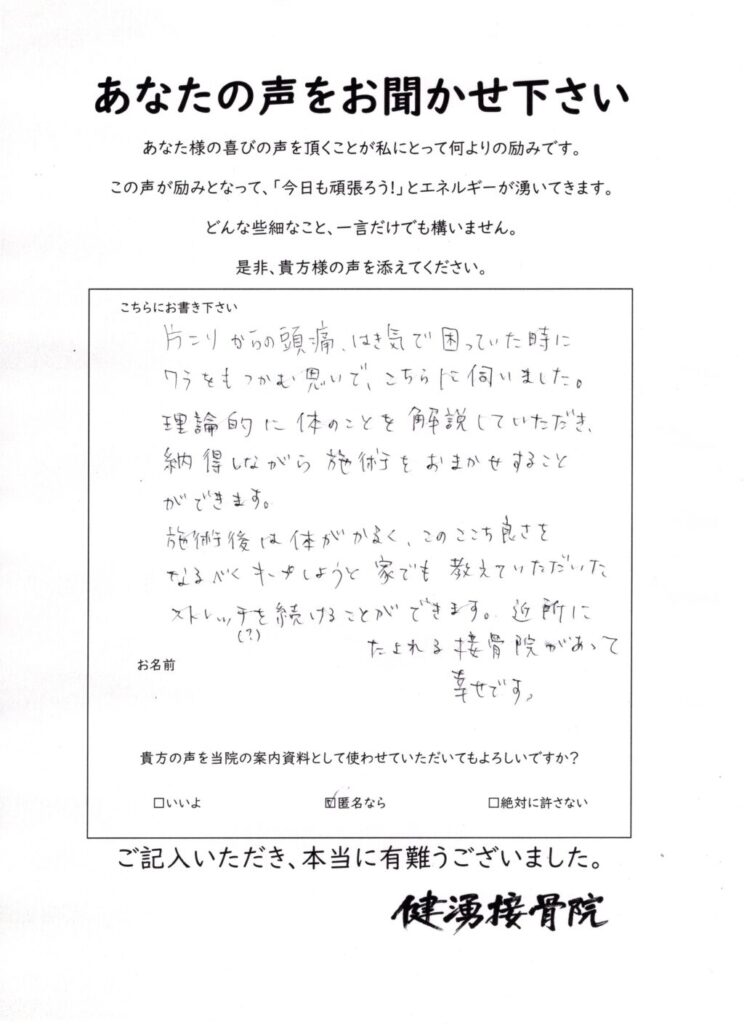 あなたの声をお聞かせ下さい
あなた様の喜びの声を頂くことが私にとって何よりの励みです。
この声が励みとなって、「今日も頑張ろう!」とエネルギーが湧いてきます。
どんな些細なこと、一言だけでも構いません。
是非、貴方様の声を添えてください。
こちらにお書き下さい
肩こりからの頭痛、はき気で困っていた時に
ワラをもつかむ思いで、こちらに伺いました。
理論的に体のことを解説していただき、
納得しながら施術をおまかせすること
ができます。
施術後は体がかるく、このここち良さを
なるべくキープしようと家でも教えていただいた
ストレッチを続けることができます。近所に
(?)
たよれる接骨院があって
お名前
幸せです。
貴方の声を当院の案内資料として使わせていただいてもよろしいですか?
□いいよ ☑匿名なら □絶対に許さない
ご記入いただき、本当に有難うございました。
健湧接骨院